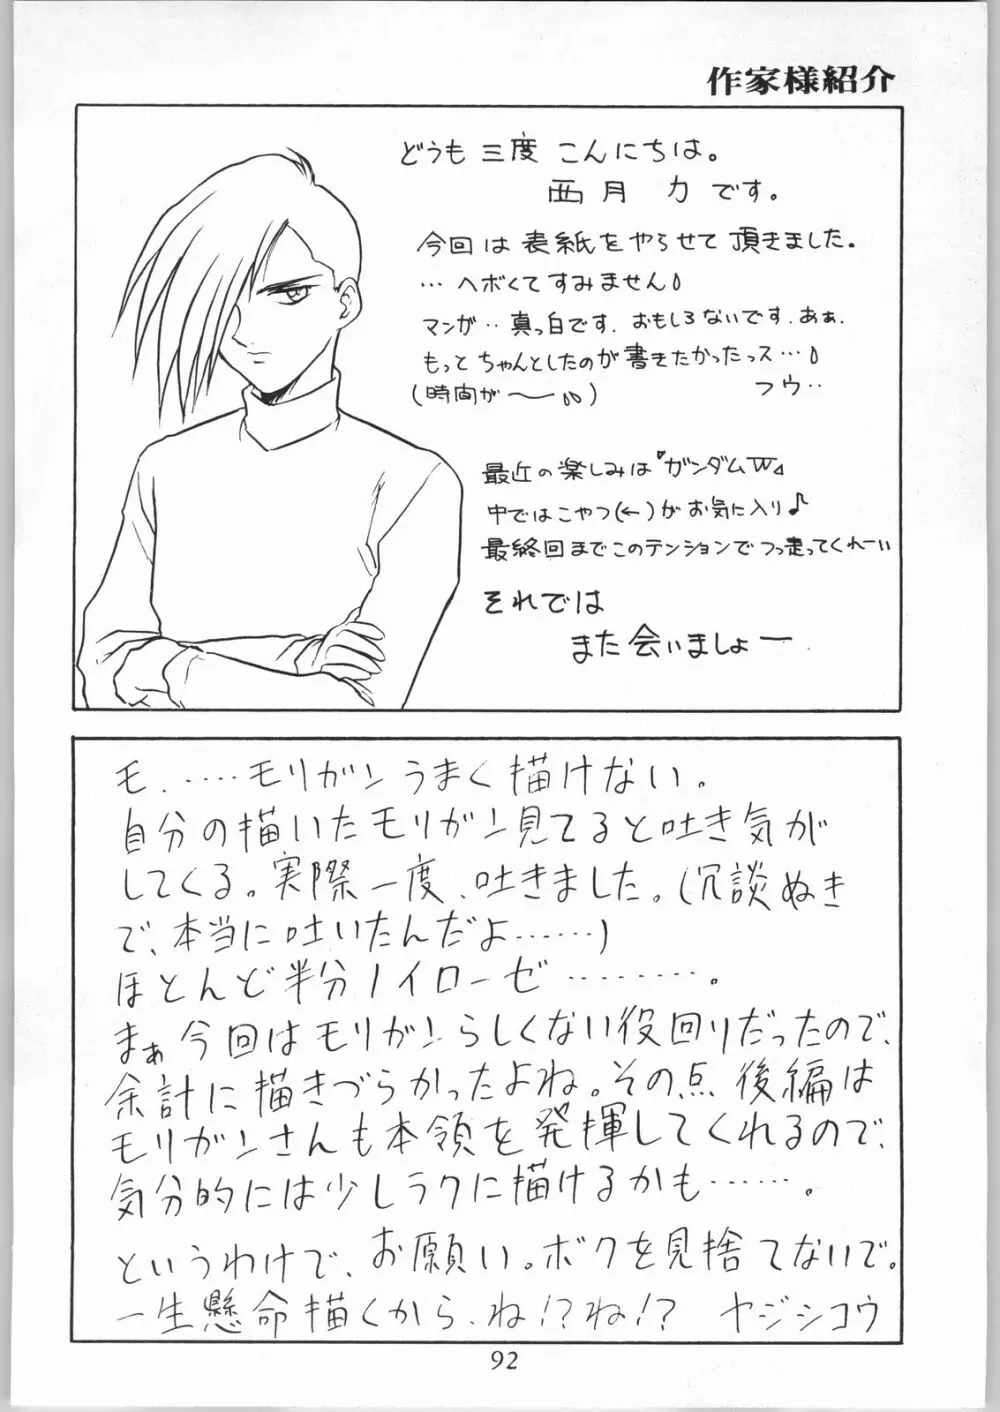 作家様紹介
どうも 三度 こんにちは。
西月 力です。
今回は 表紙を やらせて 頂きました。
…ヘボくて すみません
マンガ‥真っ白です.おもしろないです.あぁ.
もっと ちゃんとしたのが 書きたかったっス…
(時間が〜)
フウ‥
最近の楽しみは『ガンダムW』
中ではこやつ(←)がお気に入り♪
最終回までこのテンションでつっ走ってくれーい
それでは
また会いましょー
モ、……モリガンうまく描けない。
自分の描いたモリガン見てると吐き気が
してくる。実際一度、吐きました。(冗談ぬき
で、本当に吐いたんだよ……)
ほとんど半分ノイローゼ………。
まぁ今回はモリガンらしくない役回りだったので、
余計に描きづらかったよね。その点 後編は
モリガンさんも本領を発揮してくれるので、
気分的には少しラクに描けるかも……。
というわけで、お願い。ボクを見捨てないで。
一生懸命描くから、ね!?ね!? ヤジシコウ
92